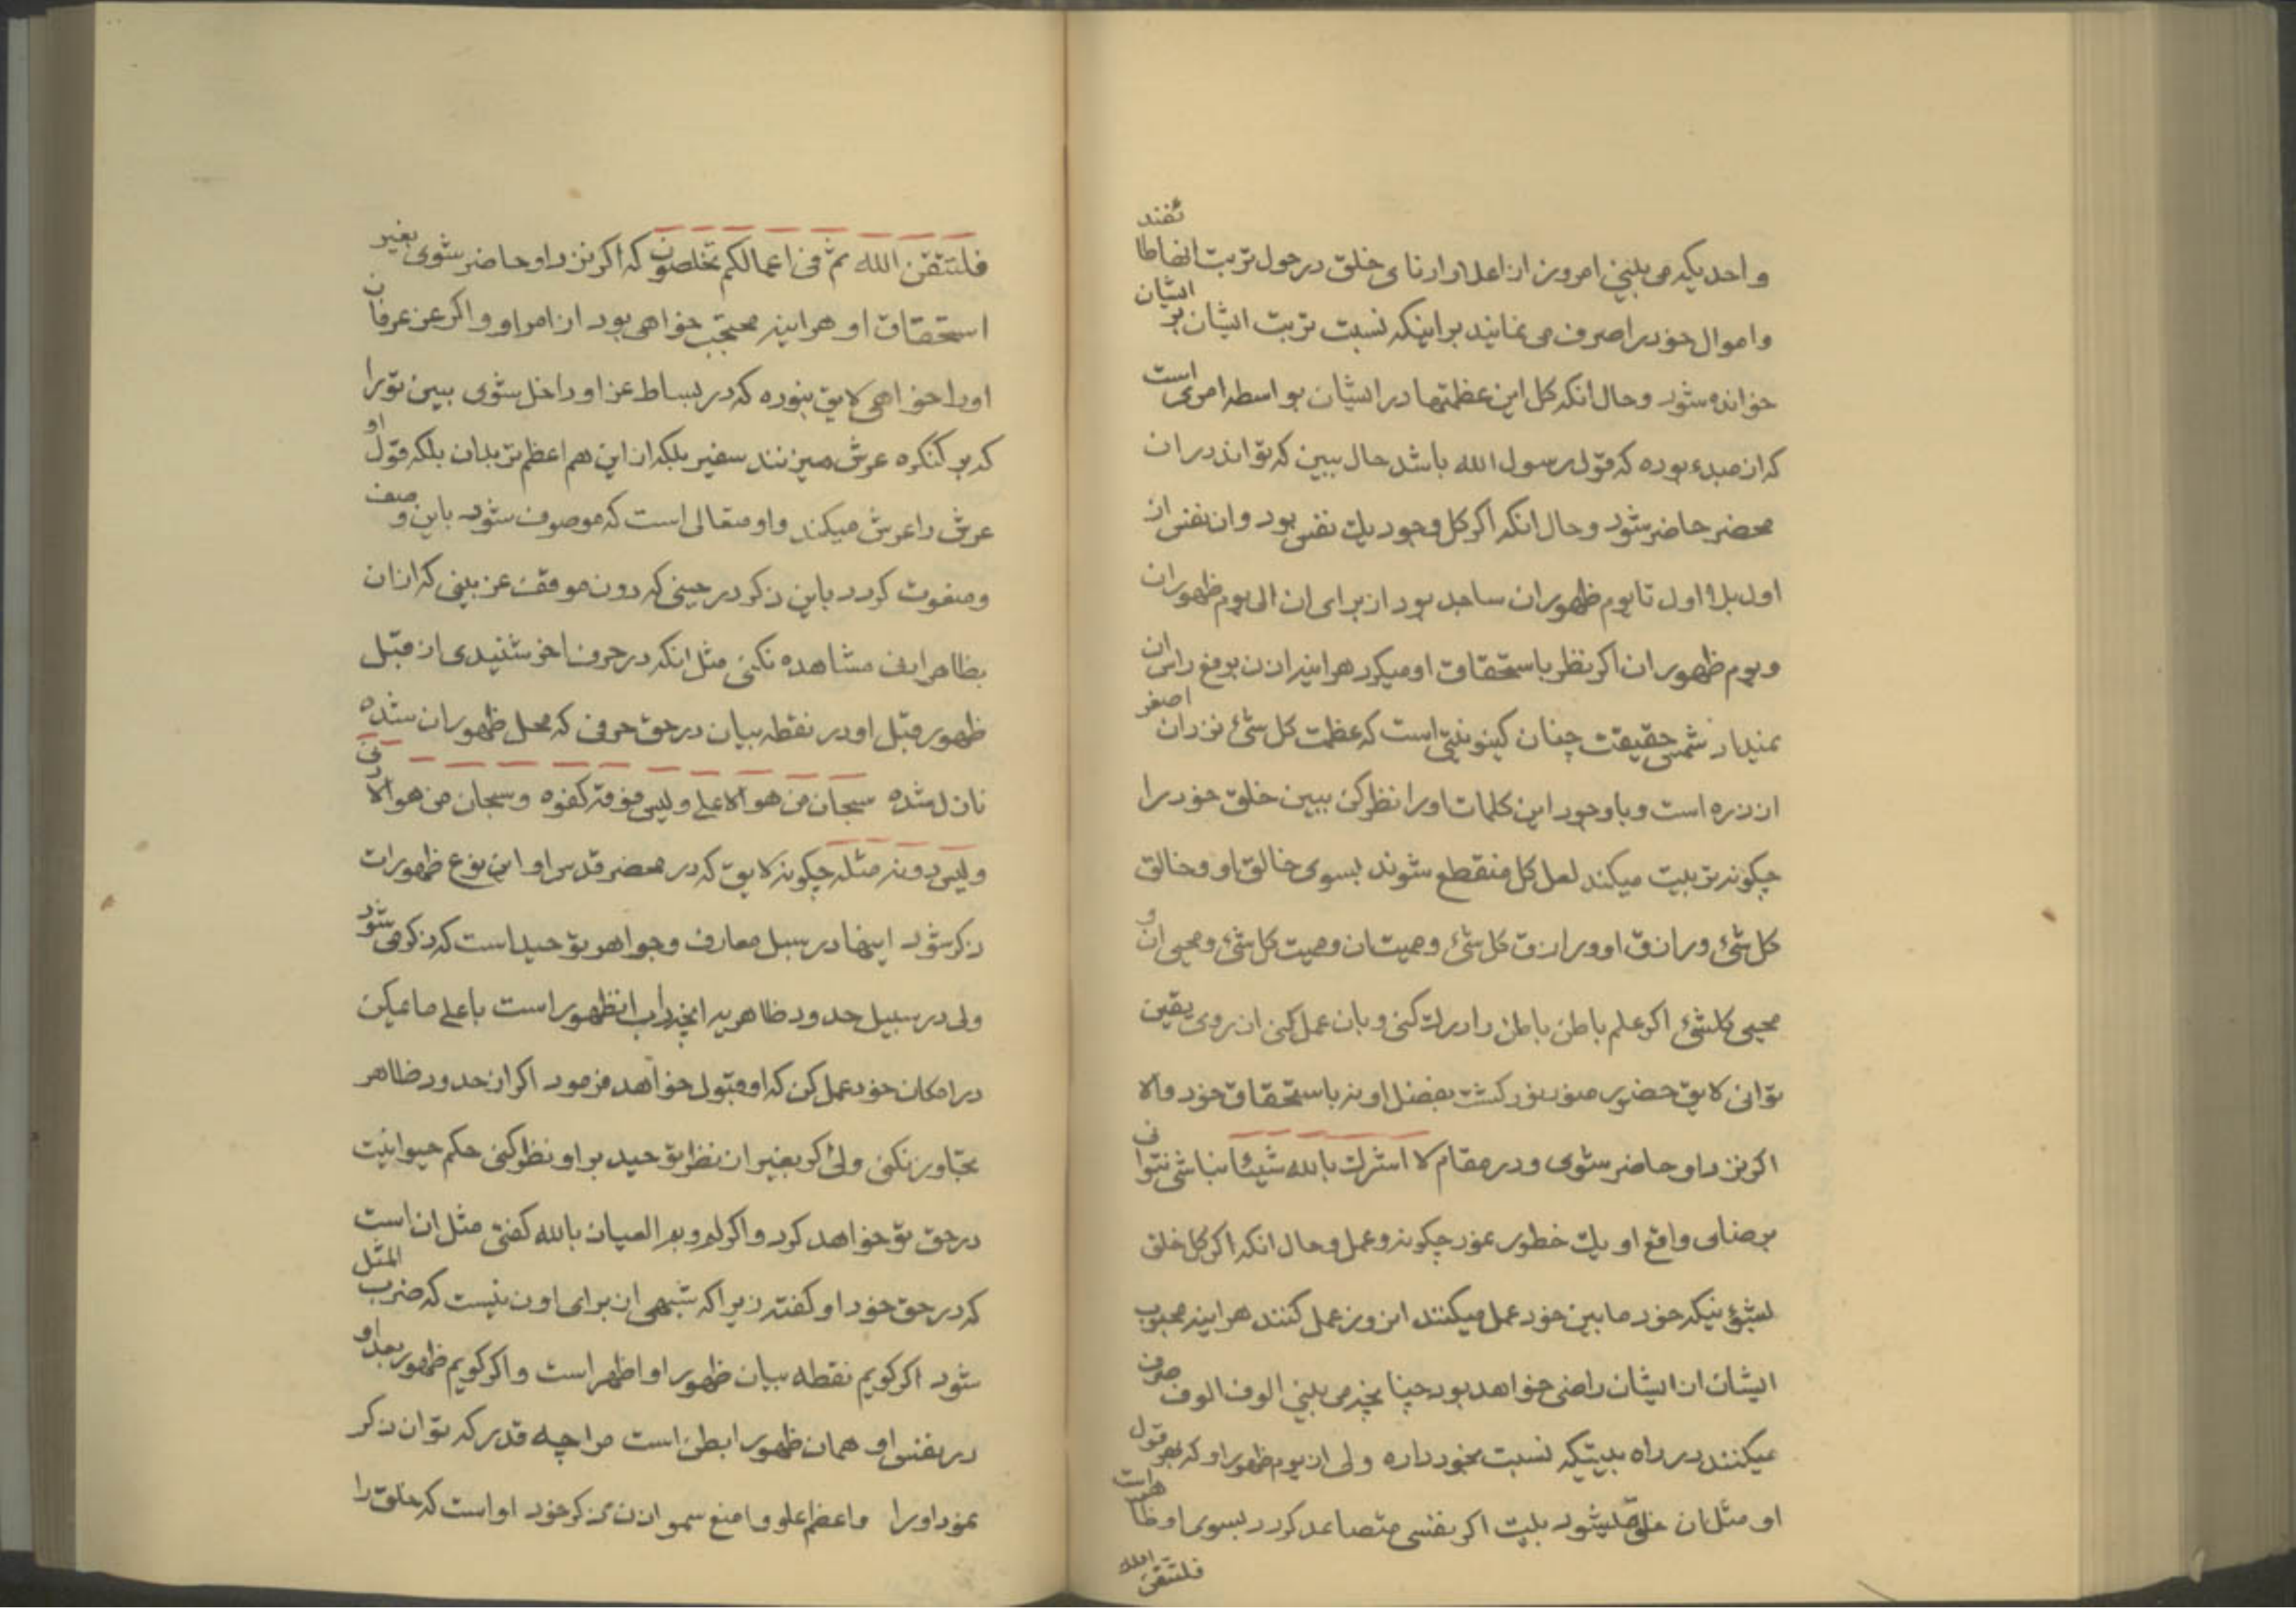 واحدیکه می بینی امروز از اعلا و ادنای خلق در حول تربت انفاطا تفند
و اموال خود را صرف می نمایند بر اینکه نسبت تربت ایشان بر ایشان
خوانده شود و حال انکه کل این عظمتها در ایشان بواسطه امری است
که از مبدء بوده که قول رسول الله باشد حال ببین که تواند در ان
محضر حاضر شود و حال انکه اکر کل وجود یك نفس بود و ان نفس از
اول بلا اول تا یوم ظهور ان ساجد بود از برای ان الی یوم ظهور ان
و یوم ظهور ان اکر نظر باستحقاق او میکرد هراینه اذن بر رفع راس ان
نمیداد شمس حقیقت چنان کینونیتی است که عظمت کل شئ نزد ان اصغر
از ذره است و با وجود این کلمات او را نظر کن ببین خلق خود را
چکونه تربیت میکند لعل کل منقطع شوند بسوی خالق او و خالق
کل شئ و رازق او و رازق کل شئ و ممیت ان و ممیت کل شئ و محیی ان و
محیی کلشئ اکر علم باطن باطن را درك کنی و بان عمل کنی از روی یقین
توانی لایق حضور منور نور کشت بفضل او نه باستحقاق خود والا
اکر نزد او حاضر شوی و در مقام لا اشرك بالله شیئا نباشی نتوانی
برضای واقع او یك خطور نمود چکونه و عمل و حال انکه اکر کل خلق
لشیئ نیکه خود ما بین خود عمل میکنند انروز عمل کنند هراینه محبوب
ایشان از ایشان راضی خواهد بود چنانچه می بینی الوف الوف صرف
میکنند در راه بیتیکه نسبت بخود داده ولی از یوم ظهور او که بهر قول
او مثل ان خلق میشود بیت اکر نفسی متصاعد کردد بسوی او ظاهر است
فلتتقن الله
فلتتقن الله ثم فی اعمالکم تخلصون که اکر نزد او حاضر شوی بغیر
استحقاق او هراینه محتجب خواهی بود از امر او و اکر عز عرفان
او را خواهی لایق نبوده که در بساط عز او داخل شوی ببین تو را
که بر کنکره عرش میزنند سفیر بلکه از این هم اعظم تر بدان بلکه قول او
عرش را عرش میکند و او متعالی است که موصوف شود باین وصف
و منعوت کردد باین ذکر در حینی که دون موقف عز بینی که از ان
بظاهر این مشاهده نکنی مثل انکه در حرف اخر شنیدی از قبل
ظهور قبل او در نقطه بیان در حق حرفی که محل ظهور ان شده
نازل شده سبحان من هو الاعلی و لیس فوقه کفوه و سبحان من هو الادنی
و لیس دونه مثله چکونه لایق که در محضر قدس او این نوع ظهورات
ذکر شود اینها در سبل معارف و جواهر توحید است که ذکر می شود
ولی در سبیل حدود ظاهریه انچه داب انظهور است باعلی ما یمکن
در امکان خود عمل کن که او قبول خواهد فرمود اکر از حدود ظاهر
تجاوز نکنی ولی اکر بغیر از نظر توحید بر او نظر کنی حکم حیوانیت
در حق تو خواهد کرد و اکر لم و بم العیاذ بالله کفتی مثل ان است
که در حق خود او کفته زیرا که شبهی از برای او ن نیست که ضرب المثل
شود اکر کویم نقطه بیان ظهور او اظهر است و اکر کویم ظهور بعد او
در نفس او همان ظهور ابطن است مرا چه قدر که توان ذکر
نمود او را و اعظم علو و امنع سمو اذن ذکر خود او است که خلق را